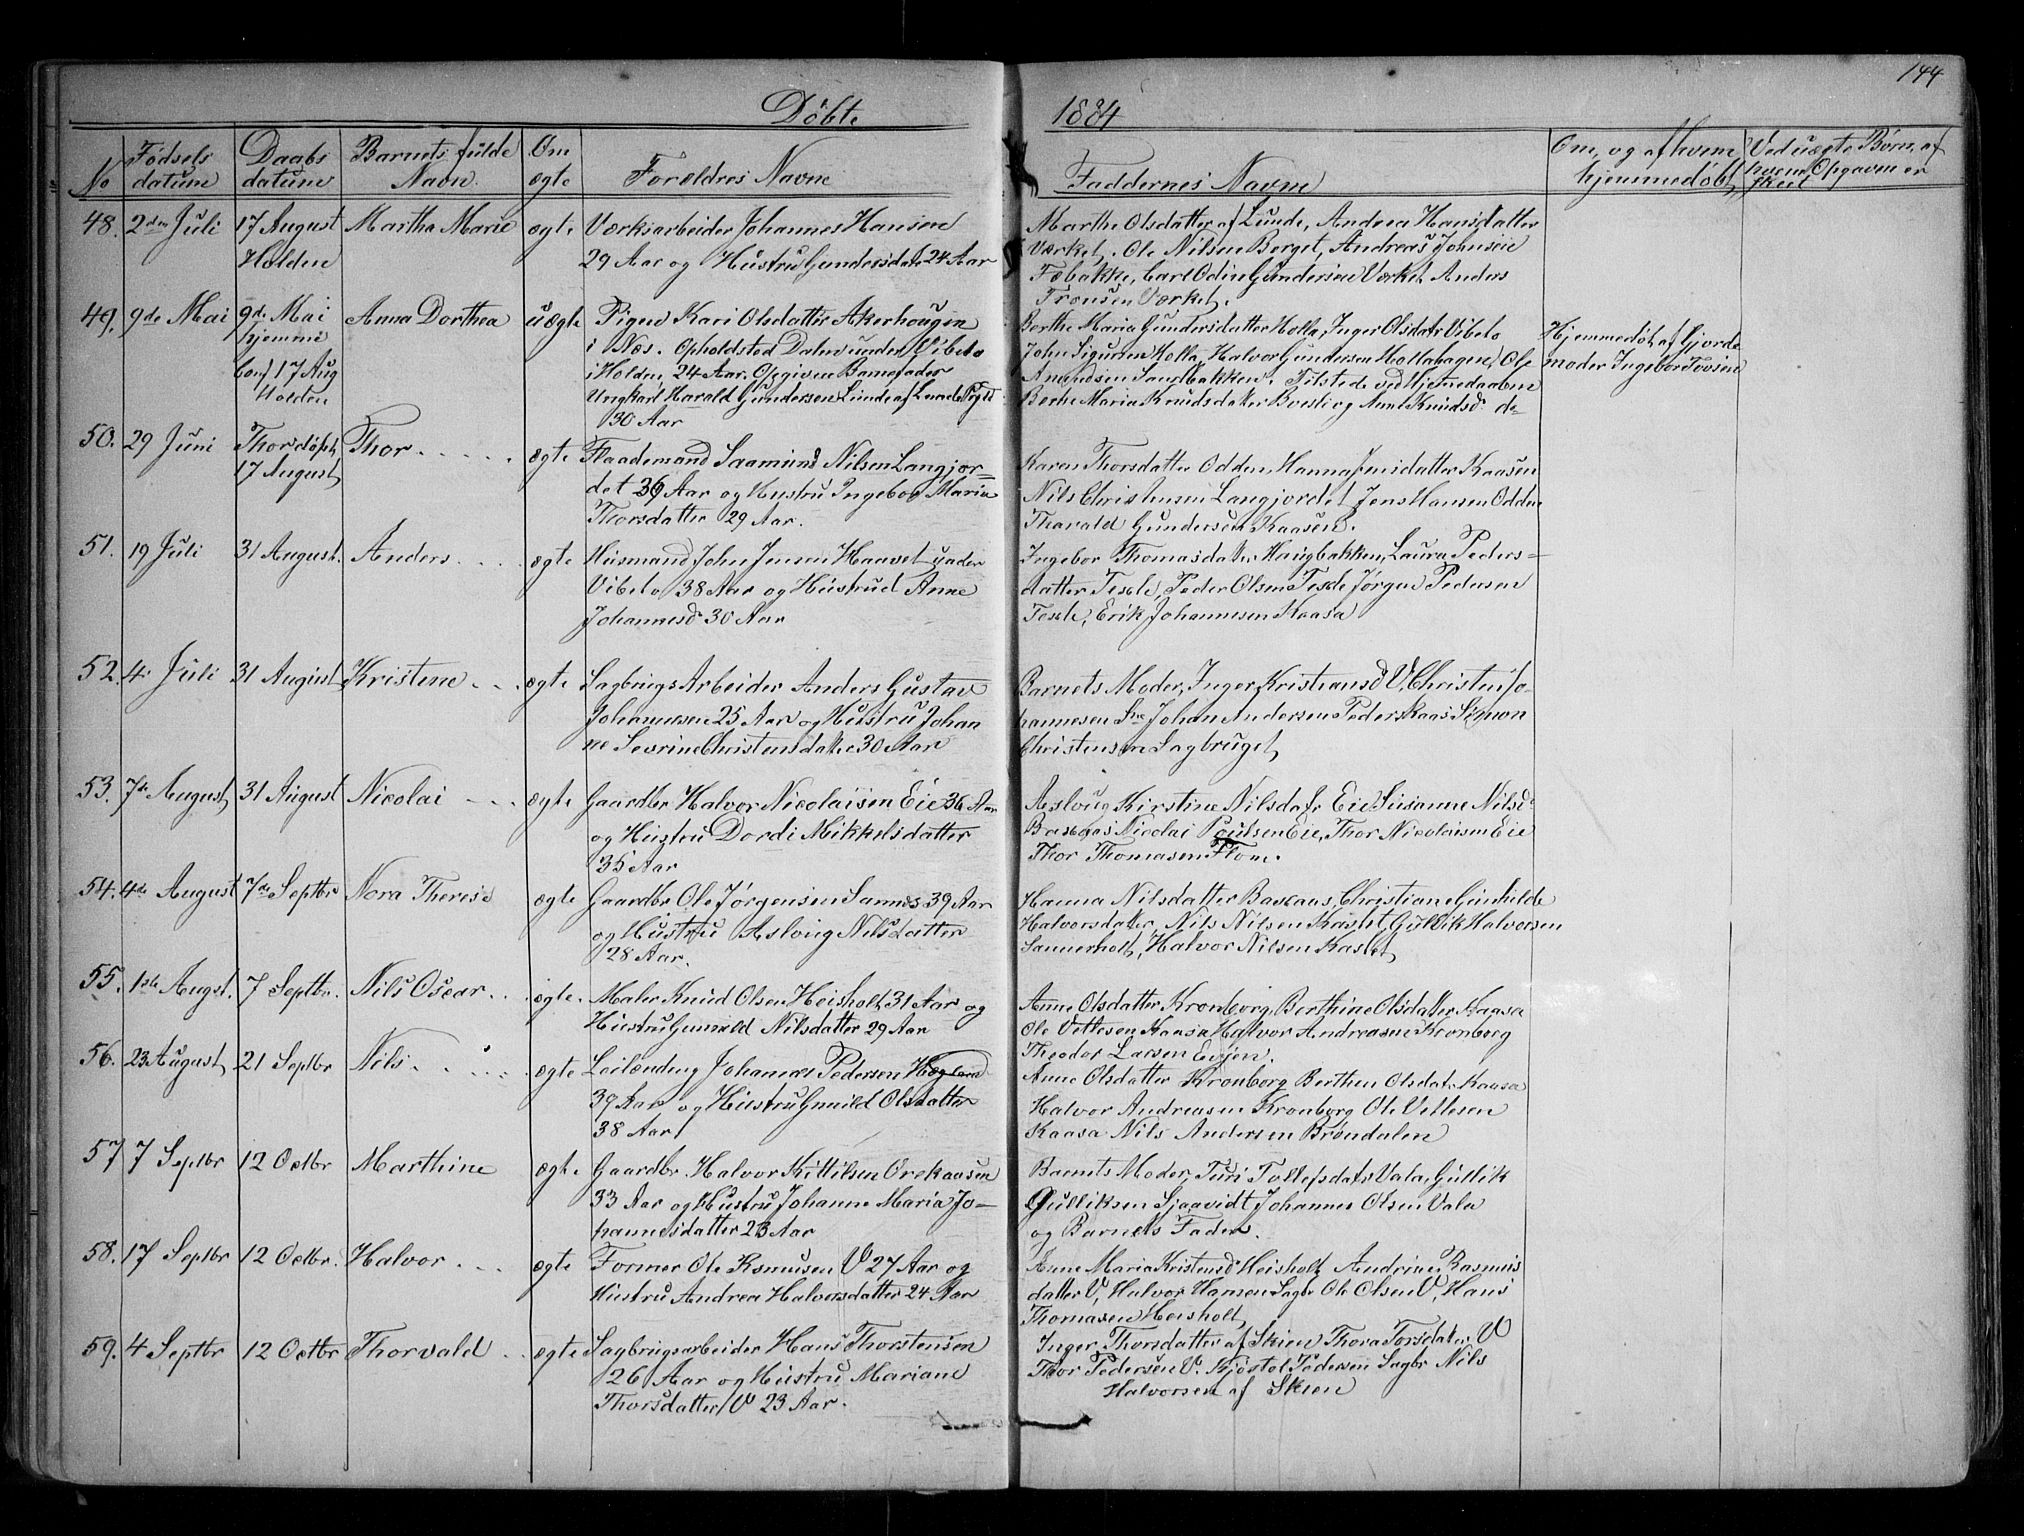 144
Döbte
1884
No
Fødsels datum
Daabs datum
Barnets fulde Navn
Om ægte
Forældres Navne
Faddernes Navne
Om, og af hvem hjemmedøbt
Ved uægte Børn, af hvem Opgaven er skeet
48. 2den Juli 17 August Martha Marie ægte Værksarbeider Johannes Hansen
Holden 29 Aar og Hustru Gundersdatr 24 Aar
Marthe Olsdatter af Lunde, Andrea Hansdatter
Værket, Ole Nilsen Berget, Andreas Johnsen
Fæbakke, Carl Odin Gundersen Værket Anders
Tronsen Værket.
49. 9de Mai 9de Mai Anna Dorthea uægte Pigen Kari Olsdatter Akerhougen
hjemme i Næs. Opholdsted Dalen under Vibeto
conf 17 Aug i Holden, 24 Aar. Opgiven Barnefader
Holden Ungkarl Harald Gundersen Lunde af Lunde Pgld
30 Aar
Berthe Maria Gundersdatter Holla, Inger Olsdatr Vibeto
John Sigursen Holla, Halvor Gundersen Hollahagen, Ole
Amundsen Sandbakken. Tilstede ved Hjemmedaaben
Berthe Maria Knudsdater og Anne Knudsd. do
Hjemmedøbt af Gjorde
moder Ingebor Tovsen
50. 29 Juni Thorsdøbt Thor ægte Flaademand Saamund Nilsen Langjor=
17 August det 36 Aar og Hustru Ingebor Maria
Thorsdatter 29 Aar.
Karen Thorsdatter Odden, Hanna Jensdatter Kaasen
Nils Christensen Langjordet Jens Hansen Odden
Tharald Gundersen Kaasen.
51. 19 Juli 31 August. Anders ægte Husmand John Jensen Haavet under
Vibeto 38 Aar og Hustrud Anne
Johannesd 30 Aar
Ingebor Thomasdater Haugbakken, Laura Peders=
datter Teksle, Peder Olsen Teksle Jørgen Pedersen
Teksle, Erik Johannesen Kaasa
52. 4. Juli 31 August Kristene ægte Sagbrugs Arbeider Anders Gustav
Johannesen 25 Aar og Hustru Johan
ne Sevrine Christensdater 30 Aar
Barnets Moder, Inger Kristiansd V, Christen Jo-
hannesen Johan Andersen Pederskaas Simon
Christensen Sagbruget
53. 7de August 31 August Nicolai ægte Gaardbr Halvor Nicolaisen Eie 36 Aar
og Hustru Dordi Mikkelsdatter
35 Aar
Aslaug Kirstine Nilsdatr Eie, Susanne Nilsd.
Baskaas Nicolai Poulsen Eie, Thor Nicolaisen Eie
Thor Thomasen Flom.
54. 4de August 7de Septbr Nora Therese ægte Gaardbr Ole Jørgensen Sannes 39 Aar
og Hustru Aslaug Nilsdatter
28 Aar.
Hanna Nilsdatter Baskaas, Christiane Gunhilde
Halvorsdater, Nils Nilsen Kastet, Gullik Halvorsen
Sannerholt, Halvor Nilsen Kastet
55. 1ste Augst. 7 Septbr. Nils Oscar ægte. Maler Knud Olsen Heisholt 31 Aar og
Hustru Gunild Nilsdatter 29 Aar
Anne Olsdatter Kronborg, Berthine Olsdatter Kaasa
Ole Vetlesen Kaasa Halvor Andreasen Kronborg
Theodor Larsen Evjen.
56. 23 August 21 Septbr Nils ægte Leilænding Johannes Pedersen Hægland
39 Aar og Hustru Gunild Olsdatter
38 Aar
Anne Olsdatter Kronborg Berthen Olsdatr Kaasa
Halvor Andreasen Kronborg Ole Vetlesen
Kaasa Nils Andersen Brøndalen
57 7 Septbr 12 Octbr Marthine ægte Gaardbr. Halvor Kittilsen Orekaasen
33 Aar og Hustru Johanne Maria Jo-
hannesdatter 23 Aar
Barnets Moder, Turi Tollefsdatr Vala, Gullik
Gulliksen Sjaavidt Johannes Olsen Vala
og Barnets Fader.
58. 17 Septbr 12 Octbr. Halvor ægte Former Ole Rasmusen V 27 Aar og
Hustru Andrea Halvorsdatter 24 Aar
Anne Maria Kristensd Heisholt Andrine Rasmus
datter V, Halvor Hansen Sagbr Ole Olsen V, Hans
Thomasen Heisholt
59. 4 Septbr 12 Octbr Thorvald ægte Sagbrugsarbeider Hans Thorstensen
26 Aar og Hustru Mariane
Thorsdatter V 23 Aar.
Inger Thorsdatter af Skien Thora Torsdater V
Thor Pedersen V. Kjøstol Pedersen Sagbr Nils
Halvorsen af Skien